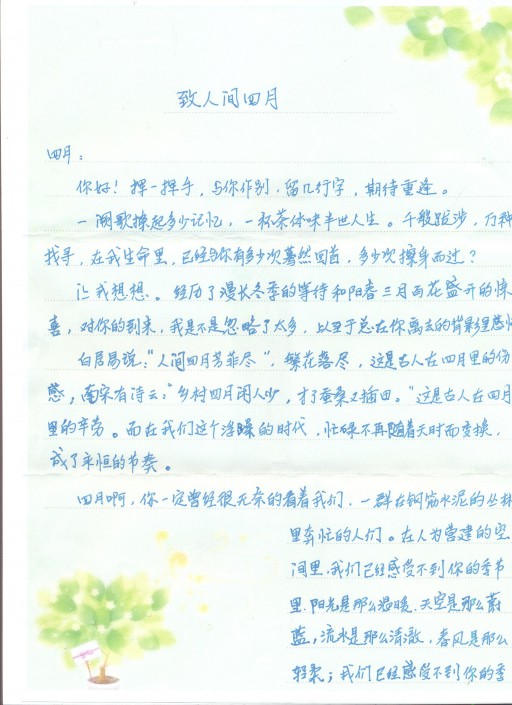 致人间四月
四月：
你好！挥一挥手，与你作别，留几行字，期待重逢。
一阕歌撩起多少记忆，一杯茶体味半世人生。千般跋涉，万种
找寻，在我生命里，已经与你有多少次蓦然回首，多少次擦身而过？
让我想想。经历了漫长冬季的等待和阳春三月雨花盛开的惊
喜，对你的到来，我是不是忽略了太多，以至于总在你离去的背影里感怀
白居易说："人间四月芳菲尽"，繁花落尽，这是古人在四月里的伤
感，南宋有诗云："乡村四月闲人少，才了蚕桑又插田。"这是古人在四月
里的辛劳。而在我们这个浮躁的时代，忙碌不再随着天时而变换，
成了永恒的节奏。
四月啊，你一定曾经很无奈的看着我们，一群在钢筋水泥的丛林
里奔忙的人们。在人为营建的空
间里，我们已经感受不到你的季节
里，阳光是那么温暖，天空是那么蔚
蓝，流水是那么清澈，春风是那么
轻柔；我们已经感受不到你的季